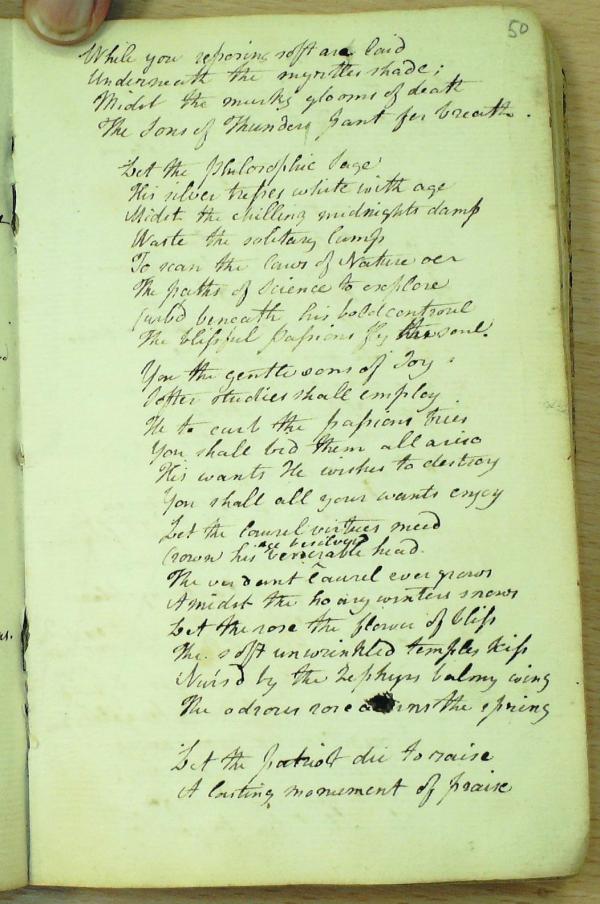 50
While you reposing soft are laid
Underneath the myrtles shade;
Midst the murky glooms of death
The Sons of Thunder pant for breath.
Let the Philosophic Sage
His silver tresses white with age
Midst the chilling midnights damp
Waste the solitary lamp
To scan the laws of Nature oer
The paths of Science to explore
Curbd beneath his bold controul
The blissful Passions fly his soul.
You the gentle sons of Joy
Softer studies shall employ
He to curb the passions tries
You shall bid them all arise
His wants He wishes to destroy
You shall all your wants enjoy
Let the laurel virtues meed
age besilverd
Crown his venerable head.
The verdant Laurel ever grows
Amidst the hoary winters snows
Let the rose the flower of bliss
The soft unwrinkled temples kiss
Nursd by the Zephyrs balmy wing
The odrous rose adorns the spring
Let the patriot die to raise
A lasting monument of praise